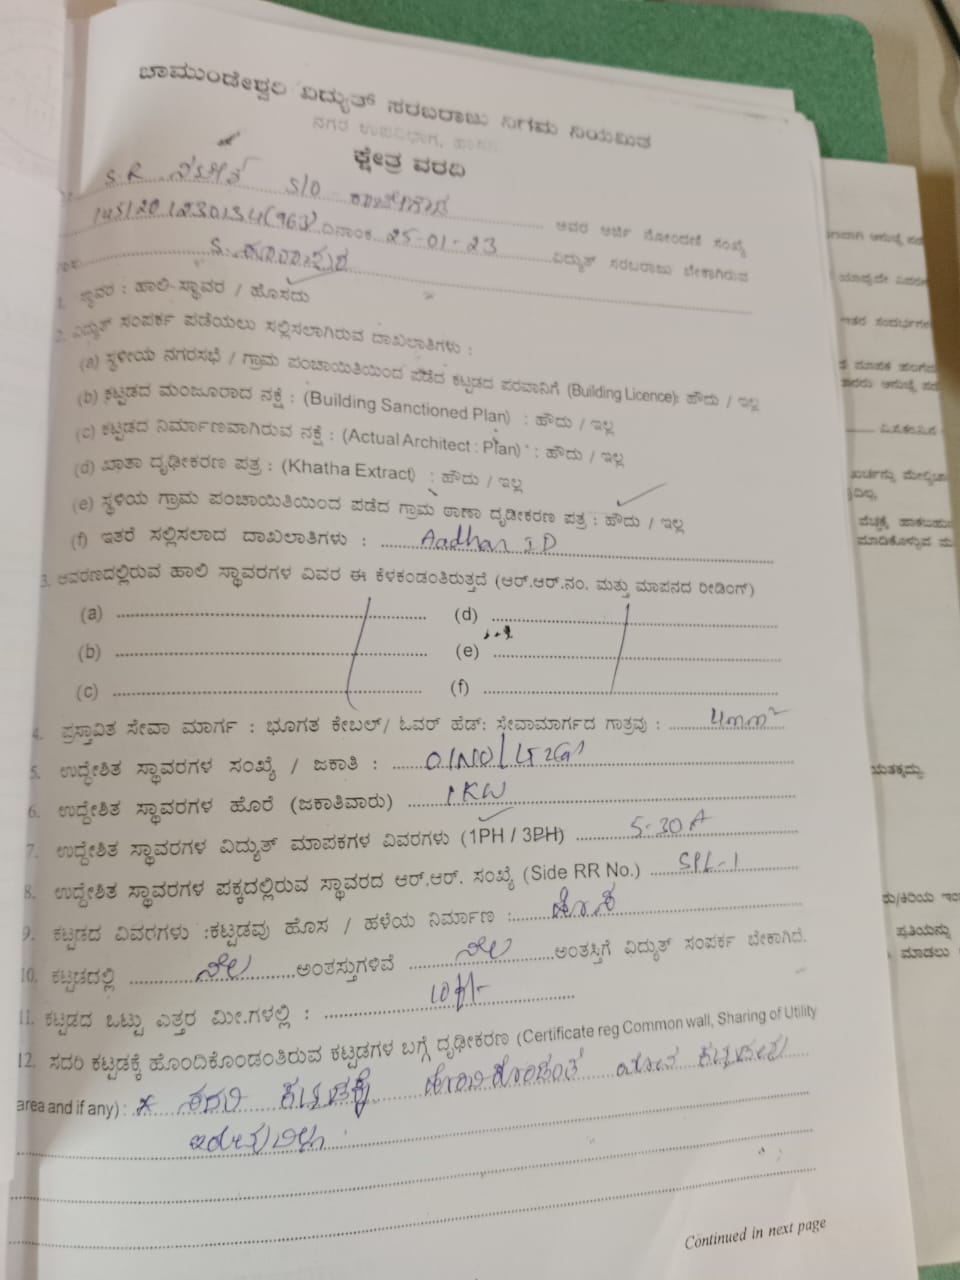 ಚಾಮುಂಡೇಶ್ವರಿ ವಿದ್ಯುತ್ ಸರಬರಾಜು ನಿಗಮ ನಿಯಮಿತ
ನಗರ ಉಪವಿಭಾಗ,
ಕ್ಷೇತ್ರ ವರದಿ
S.R. S/O ಅವರ ಅರ್ಜಿ ನೋಂದಣಿ ಸಂಖ್ಯೆ
ದಿನಾಂಕ 25-01-23 ವಿದ್ಯುತ್ ಸರಬರಾಜು ಬೇಕಾಗಿರುವ
S.
1. ಸ್ಥಾವರ : ಹಾಲಿ-ಸ್ಥಾವರ / ಹೊಸದು
2. ವಿದ್ಯುತ್ ಸಂಪರ್ಕ ಪಡೆಯಲು ಸಲ್ಲಿಸಲಾಗಿರುವ ದಾಖಲಾತಿಗಳು :
(a) ಸ್ಥಳೀಯ ನಗರಸಭೆ / ಗ್ರಾಮ ಪಂಚಾಯಿತಿಯಿಂದ ಪಡೆದ ಕಟ್ಟಡದ ಪರವಾನಿಗೆ (Building Licence): ಹೌದು / ಇಲ್ಲ
(b) ಕಟ್ಟಡದ ಮಂಜೂರಾದ ನಕ್ಷೆ : (Building Sanctioned Plan) : ಹೌದು / ಇಲ್ಲ
(c) ಕಟ್ಟಡದ ನಿರ್ಮಾಣವಾಗಿರುವ ನಕ್ಷೆ : (Actual Architect : Plan) : ಹೌದು / ಇಲ್ಲ
(d) ಖಾತಾ ದೃಢೀಕರಣ ಪತ್ರ : (Khatha Extract) : ಹೌದು / ಇಲ್ಲ
(e) ಸ್ಥಳಿಯ ಗ್ರಾಮ ಪಂಚಾಯಿತಿಯಿಂದ ಪಡೆದ ಗ್ರಾಮ ಠಾಣಾ ದೃಡೀಕರಣ ಪತ್ರ : ಹೌದು / ಇಲ್ಲ
(f) ಇತರೆ ಸಲ್ಲಿಸಲಾದ ದಾಖಲಾತಿಗಳು : Aadhar ID
3. ಆವರಣದಲ್ಲಿರುವ ಹಾಲಿ ಸ್ಥಾವರಗಳ ವಿವರ ಈ ಕೆಳಕಂಡಂತಿರುತ್ತದೆ (ಆರ್.ಆರ್.ನಂ. ಮತ್ತು ಮಾಪನದ ರೀಡಿಂಗ್)
(a) (d)
(b) (e)
(c) (f)
4. ಪ್ರಸ್ತಾವಿತ ಸೇವಾ ಮಾರ್ಗ : ಭೂಗತ ಕೇಬಲ್/ ಓವರ್ ಹೆಡ್: ಸೇವಾಮಾರ್ಗದ ಗಾತ್ರವು : 4mm²
5. ಉದ್ದೇಶಿತ ಸ್ಥಾವರಗಳ ಸಂಖ್ಯೆ / ಜಕಾತಿ :
6. ಉದ್ದೇಶಿತ ಸ್ಥಾವರಗಳ ಹೊರೆ (ಜಕಾತಿವಾರು) 1KW
7. ಉದ್ದೇಶಿತ ಸ್ಥಾವರಗಳ ವಿದ್ಯುತ್ ಮಾಪಕಗಳ ವಿವರಗಳು (1PH / 3PH) 5-30A
8. ಉದ್ದೇಶಿತ ಸ್ಥಾವರಗಳ ಪಕ್ಕದಲ್ಲಿರುವ ಸ್ಥಾವರದ ಆರ್.ಆರ್. ಸಂಖ್ಯೆ (Side RR No.) SPL-1
9. ಕಟ್ಟಡದ ವಿವರಗಳು :ಕಟ್ಟಡವು ಹೊಸ / ಹಳೆಯ ನಿರ್ಮಾಣ : ಹೊಸ
10. ಕಟ್ಟಡದಲ್ಲಿ ನೆಲ ಅಂತಸ್ತುಗಳಿವೆ ನೆಲ ಅಂತಸ್ತಿಗೆ ವಿದ್ಯುತ್ ಸಂಪರ್ಕ ಬೇಕಾಗಿದೆ.
11. ಕಟ್ಟಡದ ಒಟ್ಟು ಎತ್ತರ ಮೀ.ಗಳಲ್ಲಿ : 10ft
12. ಸದರಿ ಕಟ್ಟಡಕ್ಕೆ ಹೊಂದಿಕೊಂಡಂತಿರುವ ಕಟ್ಟಡಗಳ ಬಗ್ಗೆ ದೃಢೀಕರಣ (Certificate reg Common wall, Sharing of Utility
area and if any) : ಸದರಿ ಕಟ್ಟಡಕ್ಕೆ ಹೊಂದಿಕೊಂಡಂತೆ ಯಾವ ಕಟ್ಟಡಗಳು
ಇರುವುದಿಲ್ಲ
Continued in next page